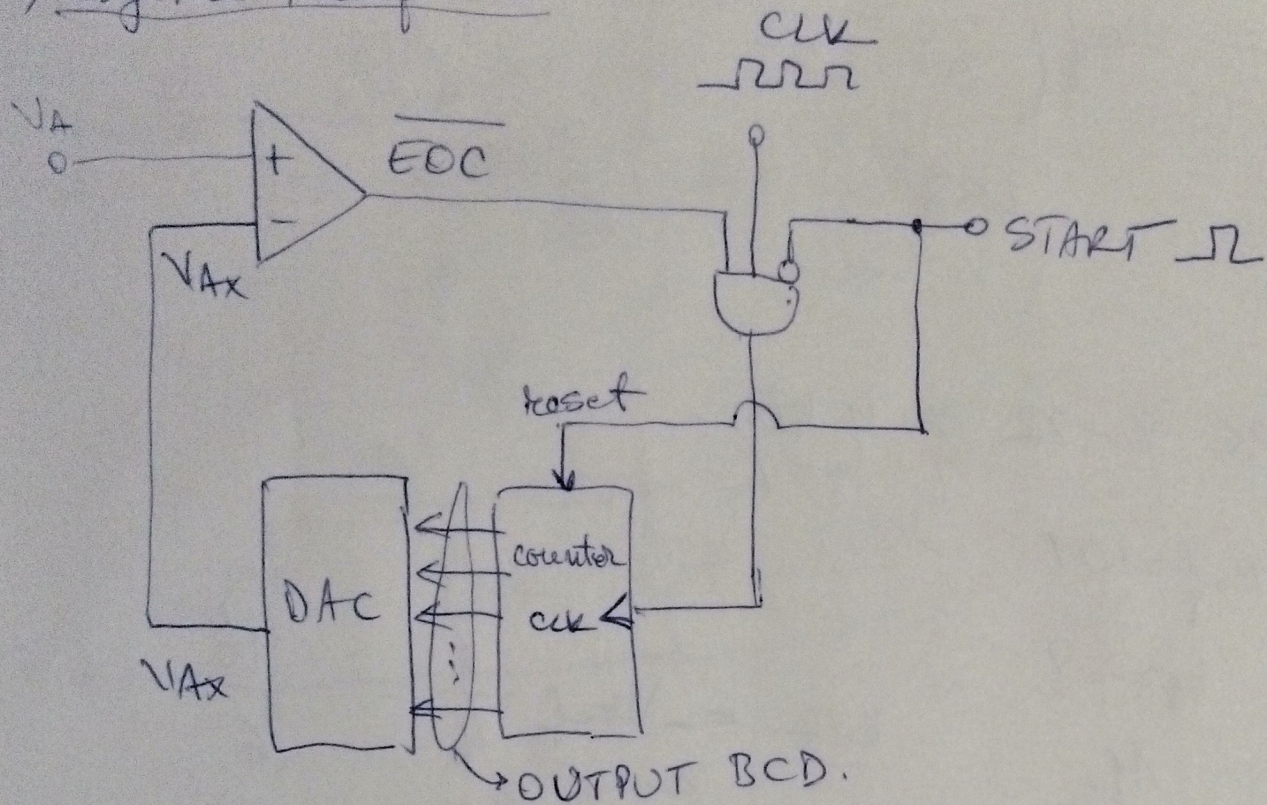 CLK
VA
+
EOC
START
-
VAx
reset
counter
DAC
CLK
VAx
OUTPUT BCD.